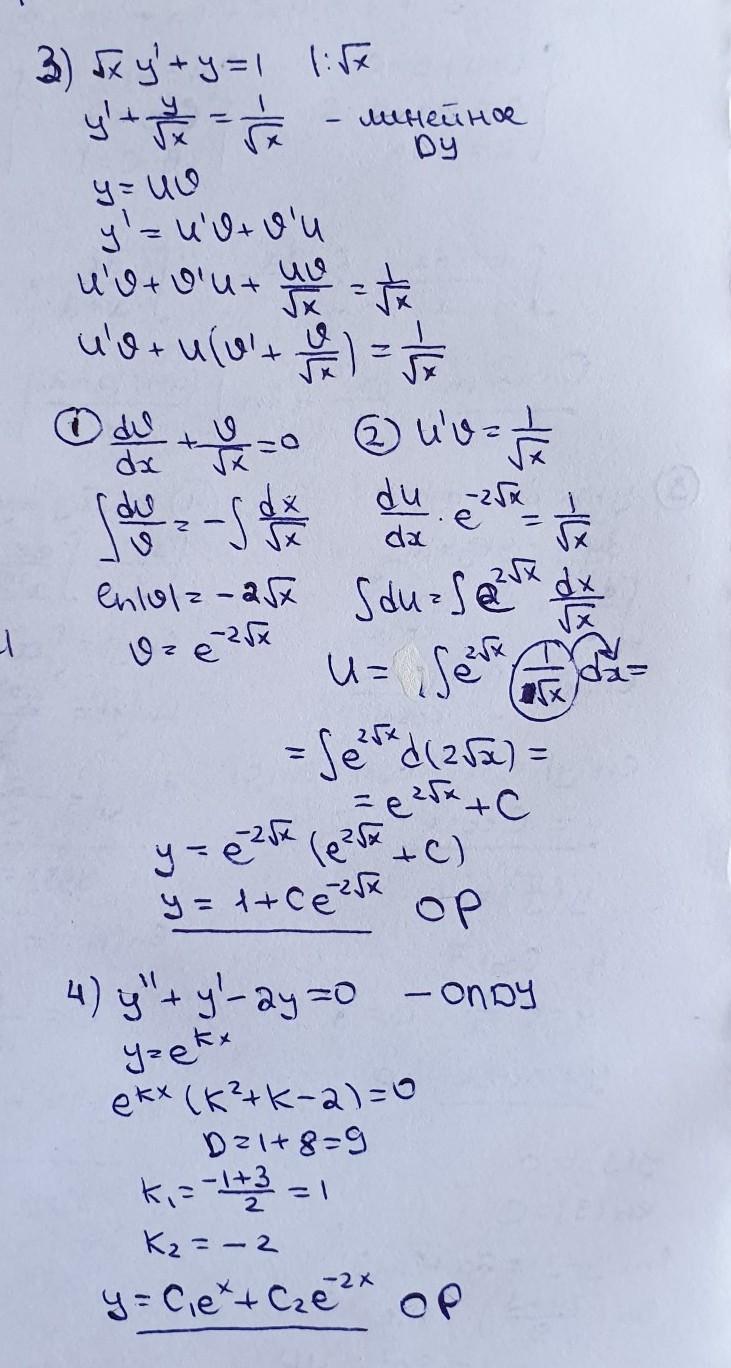 3) √x y' + y = 1 |:√x
y' + y/√x = 1/√x - линейное
ДУ
y = uv
y' = u'v + v'u
u'v + v'u + uv/√x = 1/√x
u'v + u(v' + v/√x) = 1/√x
① dv/dx + v/√x = 0 ② u'v = 1/√x
∫ dv/v = -∫ dx/√x du/dx · e^(-2√x) = 1/√x
ln|v| = -2√x ∫du = ∫e^(2√x) dx/√x
v = e^(-2√x)
u = ∫e^(2√x) · 1/√x dx =
= ∫e^(2√x) d(2√x) =
= e^(2√x) + C
y = e^(-2√x) (e^(2√x) + C)
y = 1 + Ce^(-2√x) ОР
4) y'' + y' - 2y = 0 - ОЛДУ
y = e^(kx)
e^(kx) (k² + k - 2) = 0
D = 1 + 8 = 9
k₁ = (-1+3)/2 = 1
k₂ = -2
y = C₁e^x + C₂e^(-2x) ОР